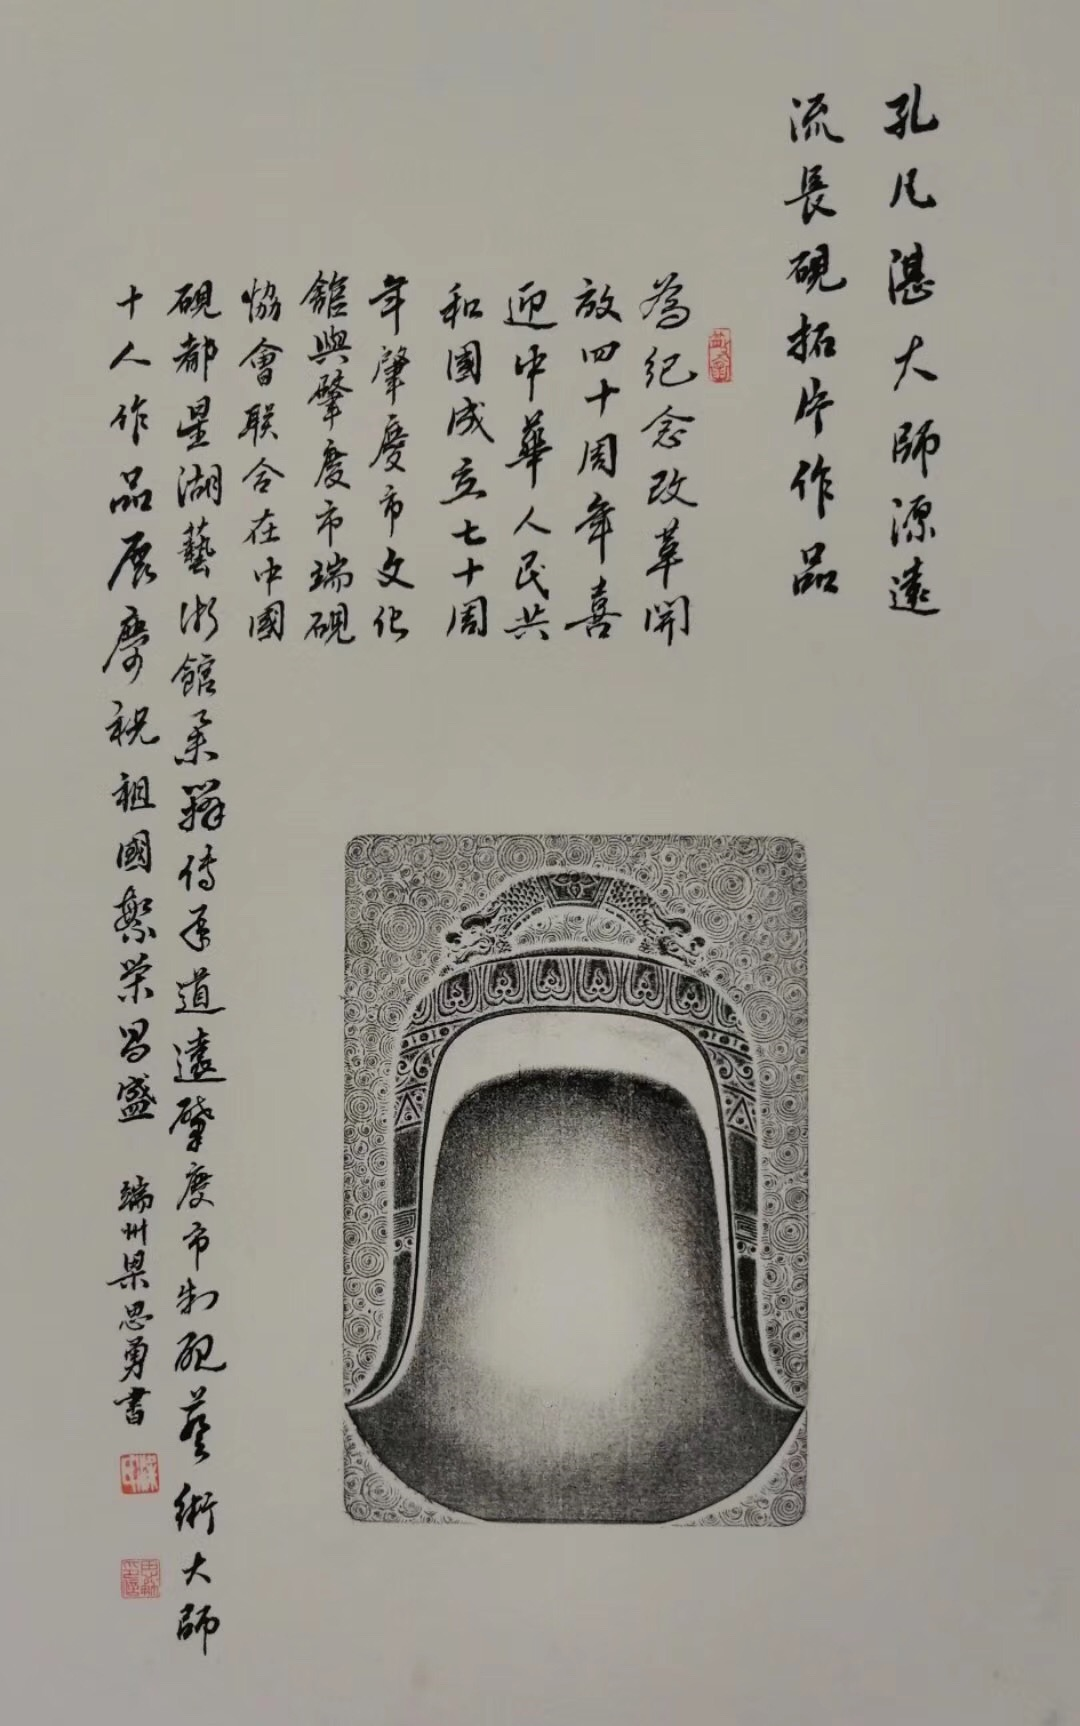 孔凡湛大師源遠
流長硯拓片作品
為紀念改革開
放四十周年喜
迎中華人民共
和國成立七十周
年肇慶市文化
館與肇慶市端硯
協會联合在中國
硯都星湖藝術館舉辦傳承道遠肇慶市制硯藝術大師
十人作品展慶祝祖國繁荣昌盛 端州梁思勇書